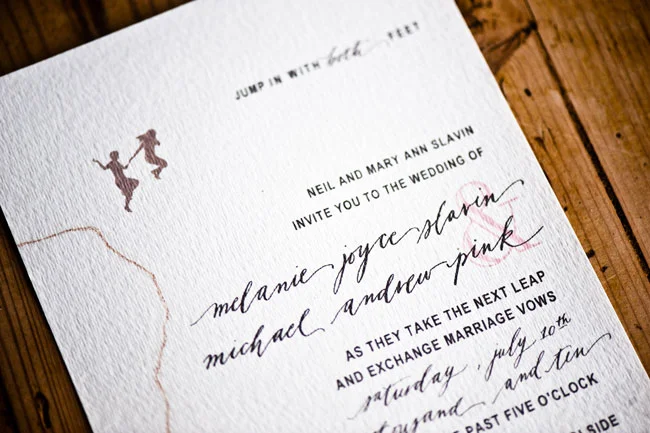 JUMP IN WITH both FEET
NEIL AND MARY ANN SLAVIN
INVITE YOU TO THE WEDDING OF
melanie joyce slavin
&
michael andrew pink
AS THEY TAKE THE NEXT LEAP
AND EXCHANGE MARRIAGE VOWS
saturday, july 10th
and ten
PAST FIVE O'CLOCK